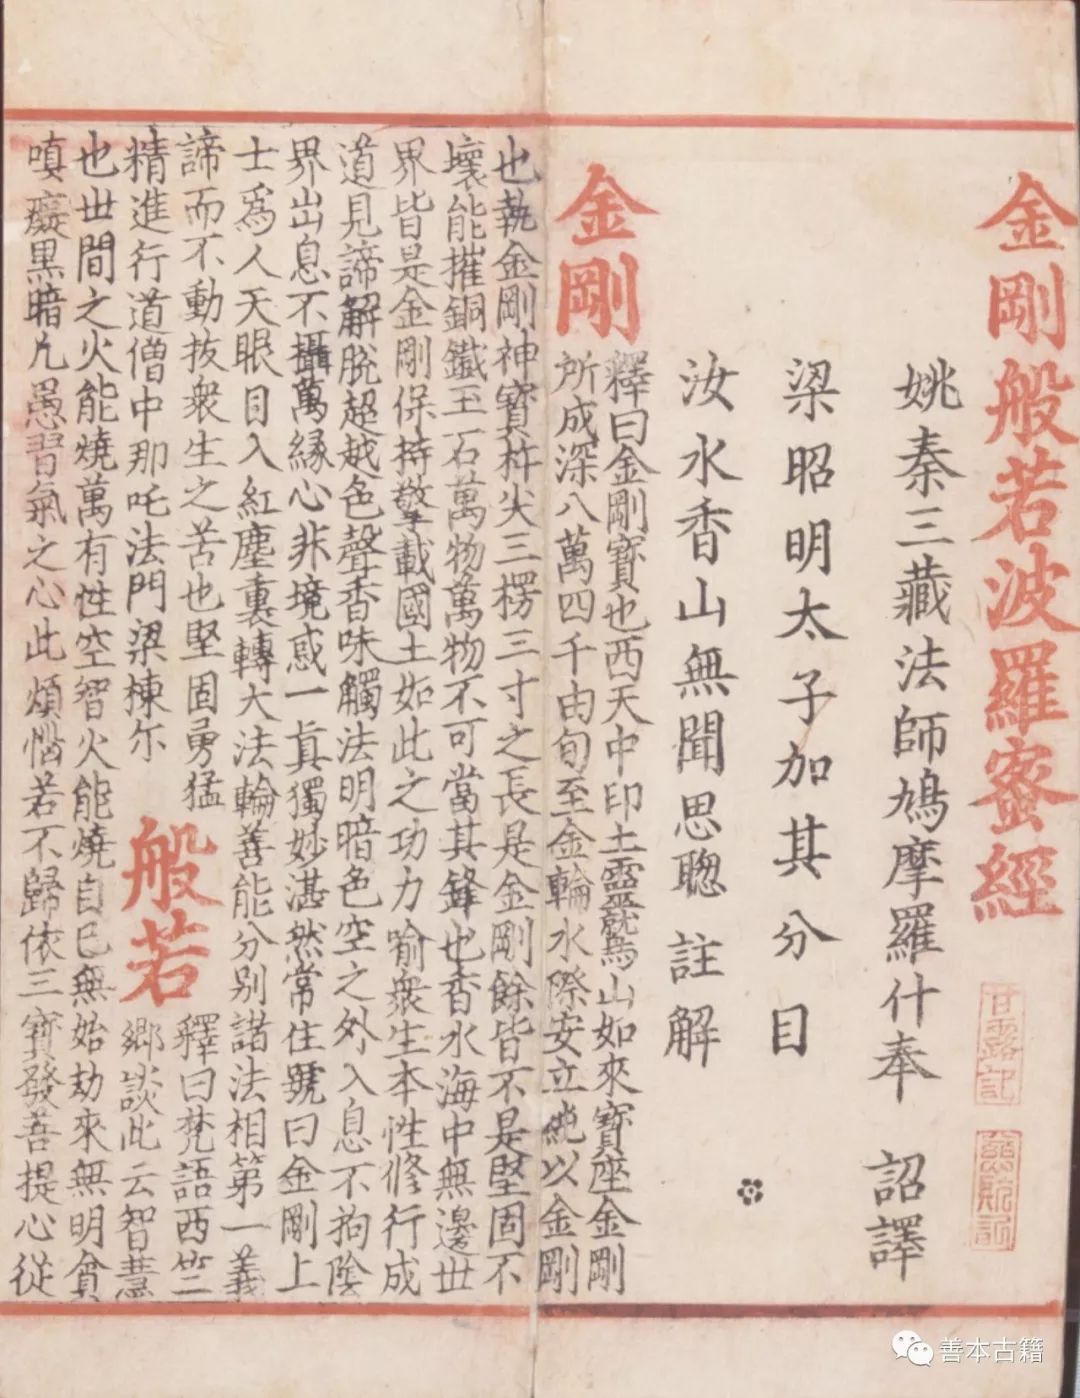 金剛般若波羅蜜經
甘露記
姚秦三藏法師鳩摩羅什奉 詔譯
梁昭明太子加其分目
汝水香山無聞思聰 註解
金剛
釋曰金剛寶也西天中印土靈鷲山如來寶座金剛
所成深八萬四千由旬至金輪水際安立純以金剛
也執金剛神寶杵尖三楞三寸之長是金剛餘皆不是堅固不
壞能摧銅鐵玉石萬物萬物不可當其鋒也香水海中無邊世
界皆是金剛保持擎載國土如此之功力喻衆生本性修行成
道見諦解脫超越色聲香味觸法明暗色空之外入息不拘陰
界出息不攝萬緣心非境惑一眞獨妙湛然常住號曰金剛上
士爲人天眼目入紅塵裏轉大法輪善能分別諸法相第一義
諦而不動拔衆生之苦也堅固勇猛
精進行道僧中那吒法門梁棟尓
般若
釋曰梵語西竺
鄉談此云智慧
也世間之火能燒萬有性空智火能燒自己無始劫來無明貪
嗔癡黑暗凢愚習氣之心此煩惱若不歸依三寶發菩提心從
善本古籍